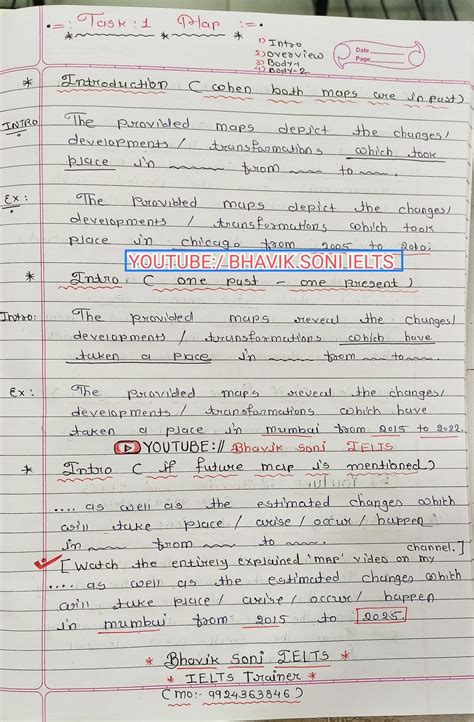 Task : 1 Map
1) Intro
2) Overview
3) Body-1
4) Body-2
Date
Page
* Introduction ( when both maps are in past)
INTRO The provided maps depict the changes/
developments / transformations which took
place in ~~~ from ~~~ to ~~~.
Ex: The provided maps depict the changes/
developments / transformations which took
place in chicago from 2005 to 2010.
YOUTUBE:/ BHAVIK.SONI.IELTS
* Intro ( one past - one present )
Intro: The provided maps reveal the changes/
developments / transformations which have
taken a place in ~~~ from ~~~ to ~~~.
Ex: The provided maps reveal the changes/
developments / transformations which have
taken a place in mumbai from 2015 to 2022.
YOUTUBE:// Bhavik Soni IELTS
* Intro ( if future map is mentioned )
.... as well as the estimated changes which
will take place / arise / occur / happen
in ~~~ from ~~~ to ~~~.
channel.]
[ Watch the entirely explained 'map' video on my
.... as well as the estimated changes which
will take place / arise / occur / happen
in mumbai from 2015 to 2025.
* Bhavik Soni IELTS *
* IELTS Trainer *
( mo:- 9924363846 )